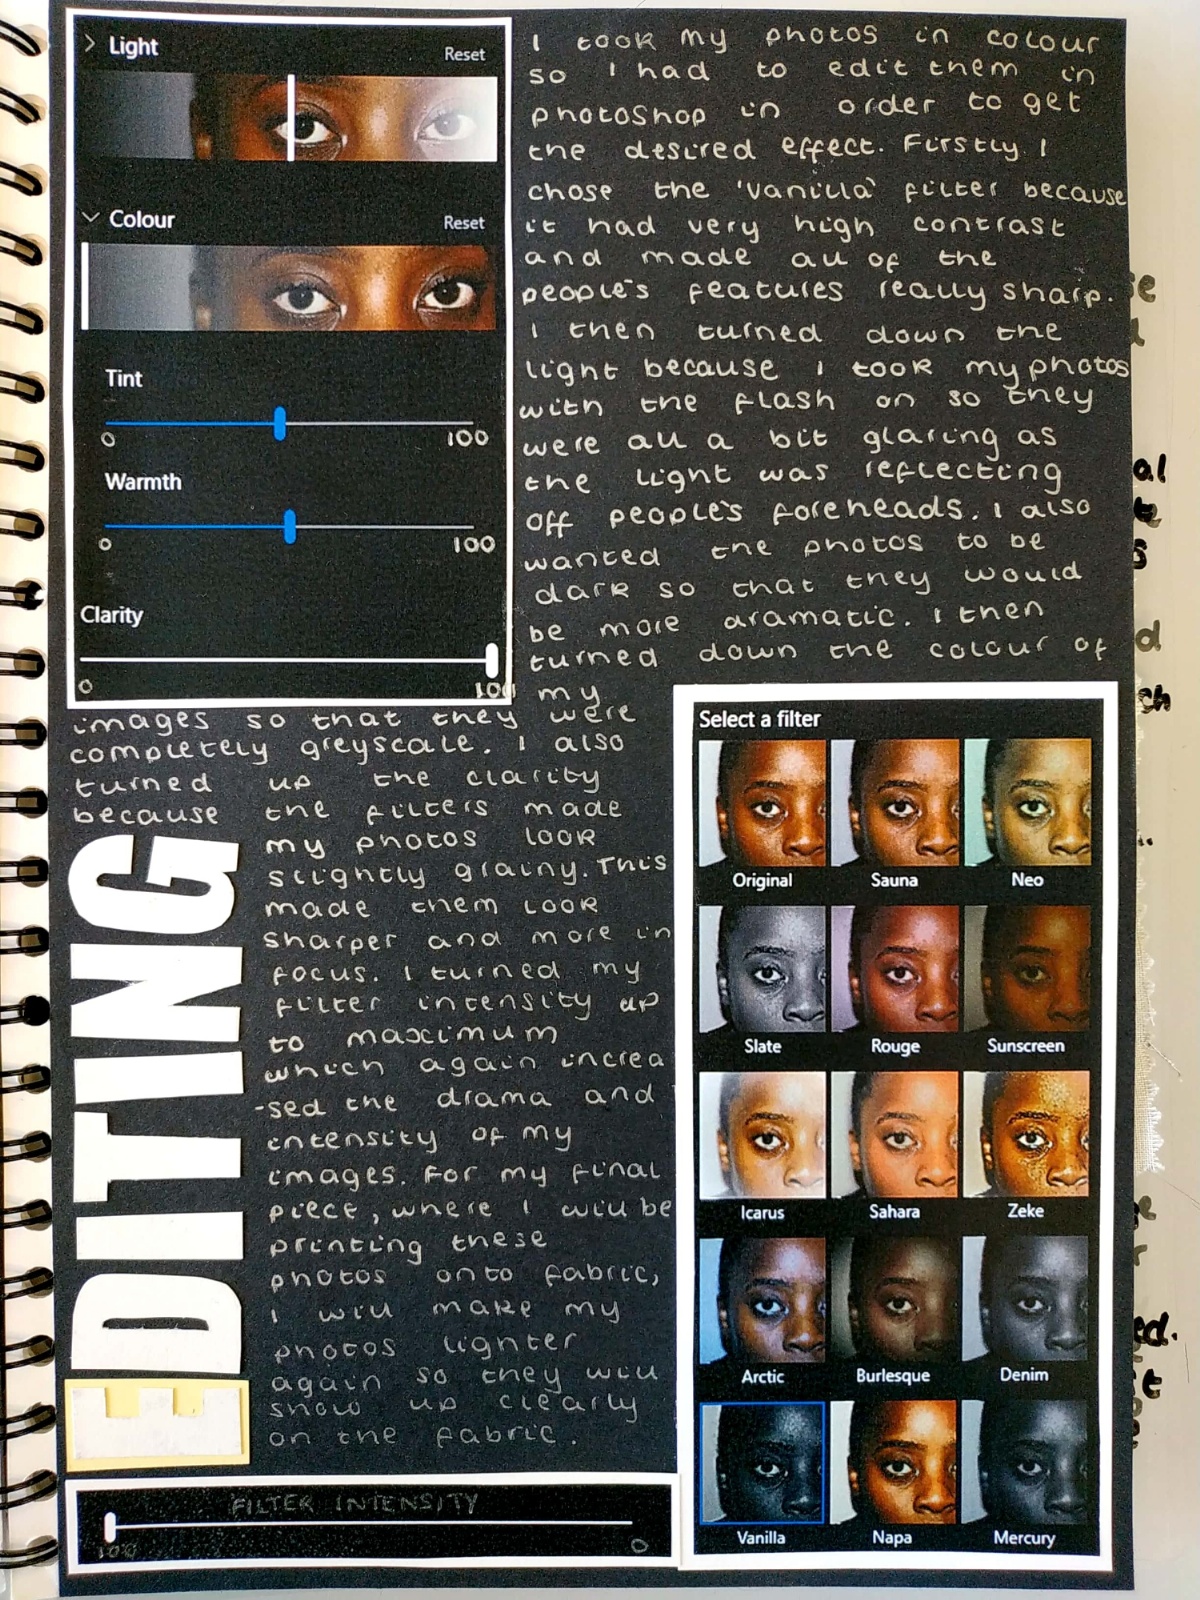 Light
Reset
Colour
Reset
Tint
0 100
Warmth
0 100
Clarity
0 100
I took my photos in colour
so I had to edit them in
photoshop in order to get
the desired effect. Firstly I
chose the 'Vanilla' filter because
it had very high contrast
and made all of the
people's features really sharp.
I then turned down the
light because I took my photos
with the flash on so they
were all a bit glaring as
the light was reflecting
off people's foreheads. I also
wanted the photos to be
dark so that they would
be more dramatic. I then
turned down the colour of
my
images so that they were
completely greyscale. I also
turned up the clarity
because the filters made
my photos look
slightly grainy. This
made them look
sharper and more in
focus. I turned my
filter intensity up
to maximum
which again increa
-sed the drama and
intensity of my
images. For my final
piece, where I will be
printing these
photos onto fabric,
I will make my
photos lighter
again so they will
show up clearly
on the fabric.
EDITING
Select a filter
Original Sauna Neo
Slate Rouge Sunscreen
Icarus Sahara Zeke
Arctic Burlesque Denim
Vanilla Napa Mercury
FILTER INTENSITY
100 0